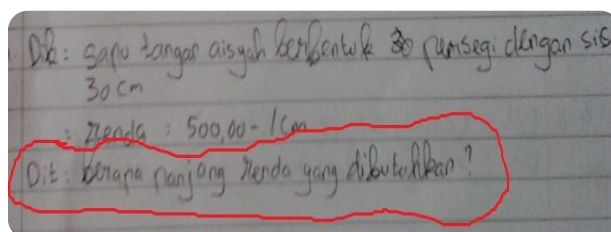 Dik: sapu tangan aisyah berbentuk persegi dengan sis
30 cm
: Renda : 500,00 - 1 cm
Dit: berapa panjang renda yang dibutuhkan?